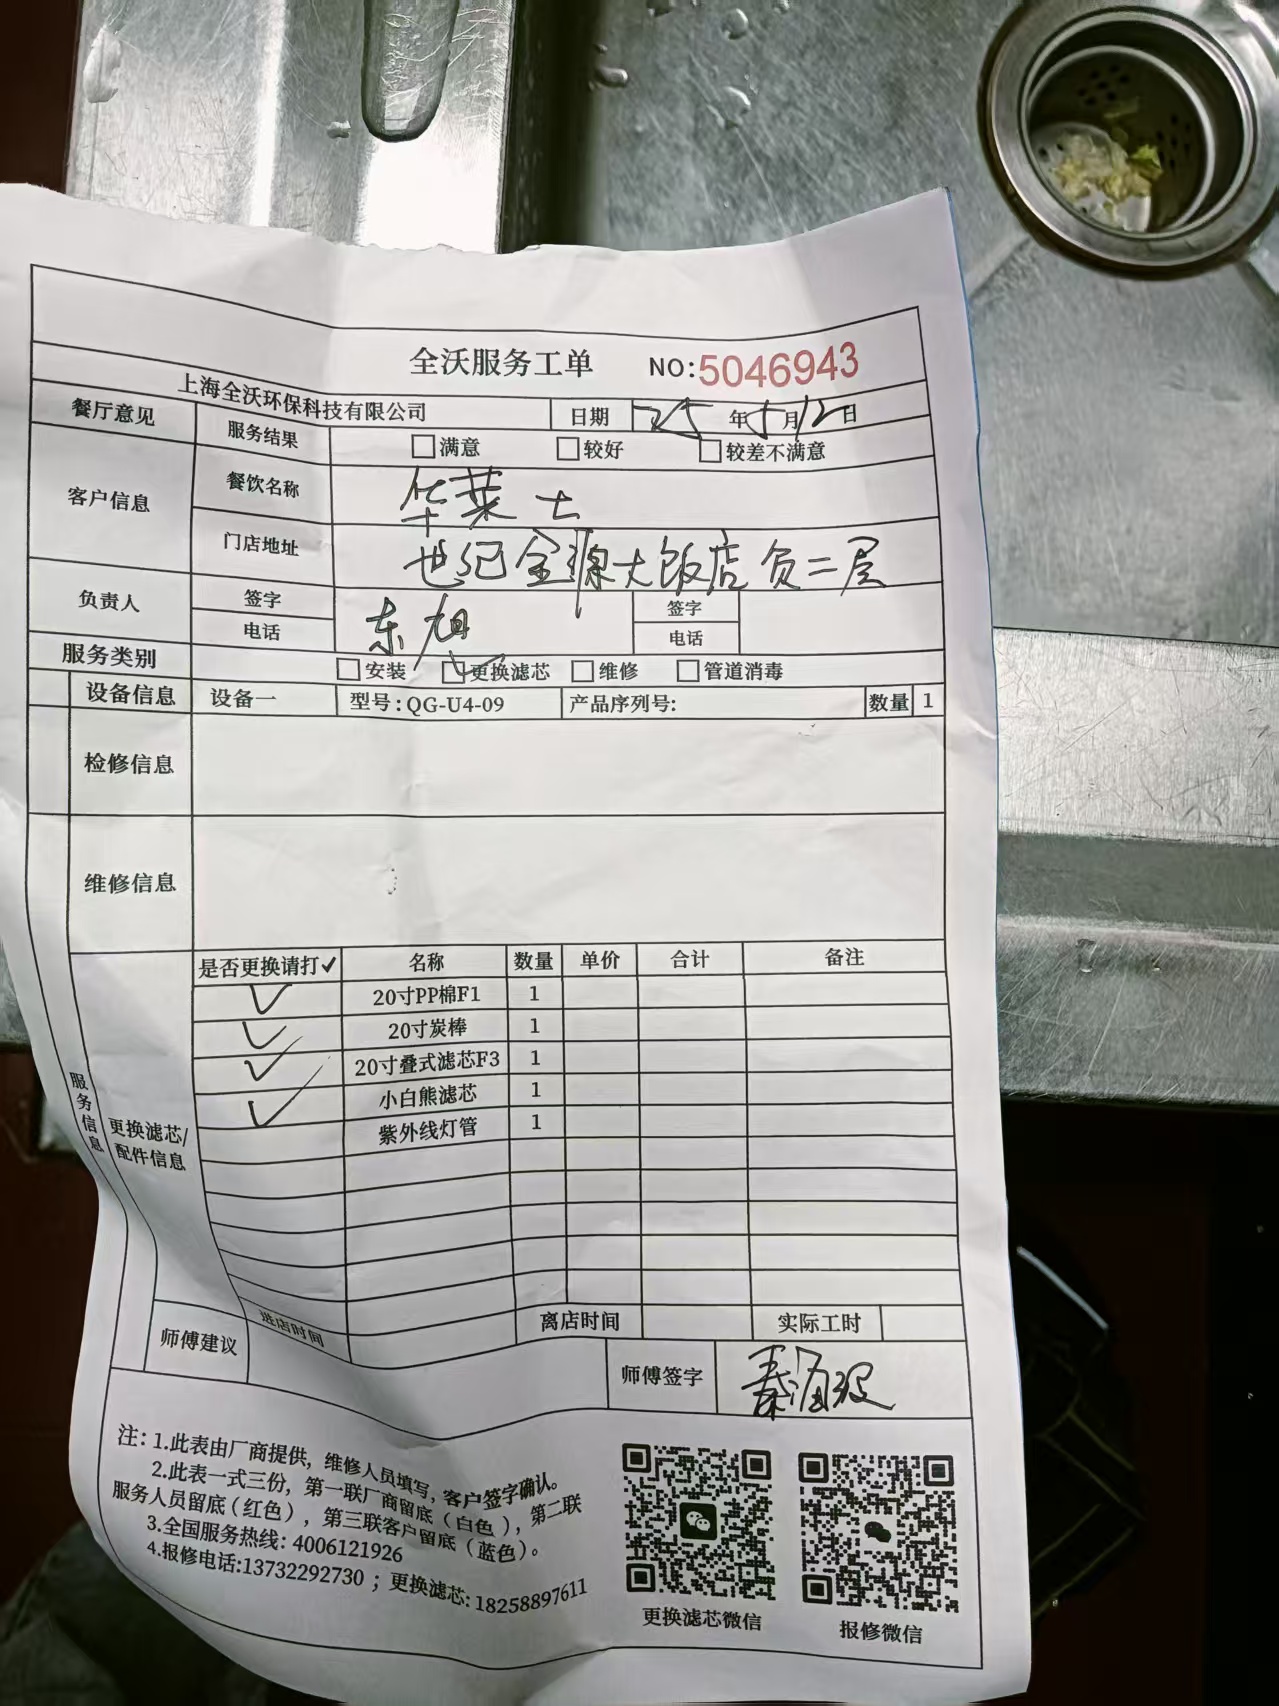 全沃服务工单 NO:5046943
上海全沃环保科技有限公司 日期 25年5月12日
餐厅意见 服务结果 满意 较好 较差不满意
客户信息 餐饮名称 华莱士
门店地址 世纪金源大饭店负二层
负责人 签字 东旭 签字
电话 电话
服务类别 安装 更换滤芯 维修 管道消毒
设备信息 设备一 型号:QG-U4-09 产品序列号: 数量 1
检修信息
维修信息
服务信息
更换滤芯/配件信息
是否更换请打✓ 名称 数量 单价 合计 备注
✓ 20寸PP棉F1 1
✓ 20寸炭棒 1
✓ 20寸叠式滤芯F3 1
✓ 小白熊滤芯 1
紫外线灯管 1
进店时间 离店时间 实际工时
师傅建议 师傅签字 秦海
注: 1.此表由厂商提供, 维修人员填写, 客户签字确认。
2.此表一式三份, 第一联厂商留底(白色), 第二联
服务人员留底(红色), 第三联客户留底(蓝色)。
3.全国服务热线: 4006121926
4.报修电话:13732292730 ; 更换滤芯: 18258897611
更换滤芯微信 报修微信